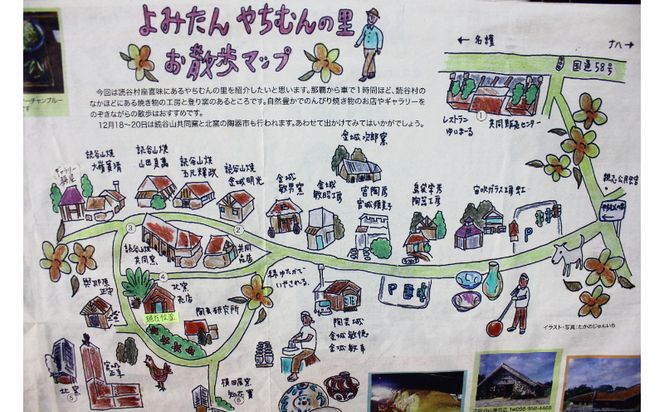 よみたん やちむんの里
お散歩マップ
今回は読谷村座喜味にあるやちむんの里を紹介したいと思います。那覇から車で1時間ほど、読谷村の
なかほどにある焼き物の工房と登り窯のあるところです。自然豊かでのんびり焼き物のお店やギャラリーを
のぞきながらの散歩はおすすめです。
12月18～20日は読谷山共同窯と北窯の陶器市も行われます。あわせて出かけてみてはいかがでしょう。
← 名護
国道58号
レストラン
ゆいまーる
①
共同販売センター
金城次郎窯
読谷山焼
大嶺實清
読谷山焼
山田真萬
読谷山焼
玉元輝政
読谷山焼
金城明光
金城
敏男窯
金城
敏昭工房
宮陶房
ギャラリー
陶芸工房
宙吹ガラス工房 虹
②
③
読谷山焼
共同窯
共同
売店
④
北窯
売店
與那原
正守
現在位置
陶芸城
金城敏徳
横田屋窯
北窯
⑤
⑥
P
イラスト・写真：たかのじゅんいち